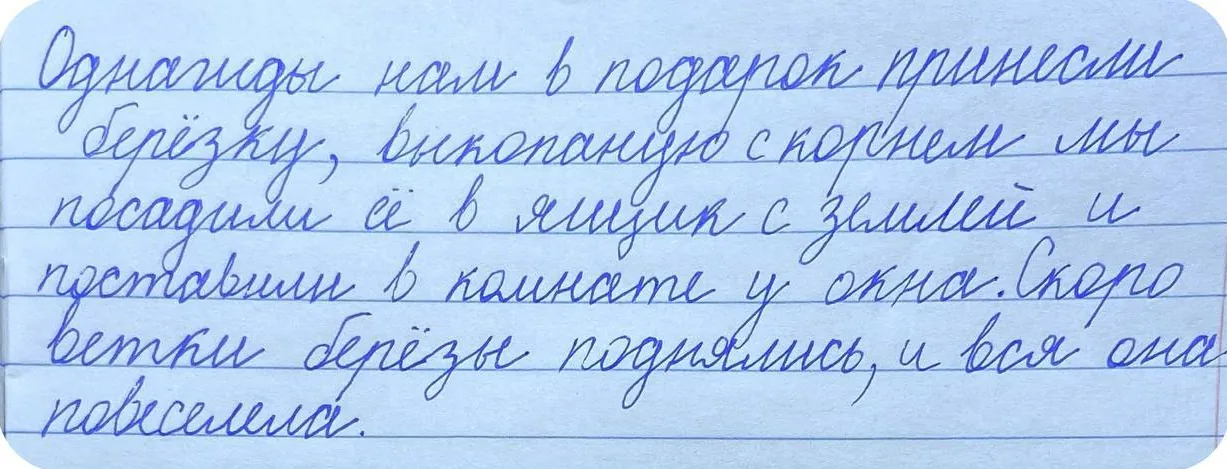 Однажды нам в подарок принесли
берёзку, выкопаную с корнем мы
посадили её в ящик с землей и
поставили в комнате у окна. Скоро
ветки берёзы поднялись, и вся она
повеселела.